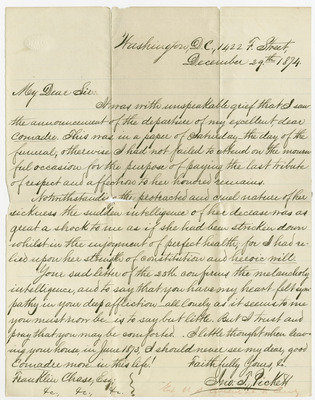 Washington, D.C., 1422 F. Street,
December 29th 1874.
My Dear Sir:
It was with unspeakable grief that I saw
the announcement of the departure of my excellent dear
Comadre. This was in a paper of Saturday, the day of the
funeral, otherwise I had not failed to attend on the mourn-
ful occasion for the purpose of paying the last tribute
of respect and affection to her honored remains.
Notwithstanding the protracted and cruel nature of her
sickness the sudden intelligence of her decease was as
great a shock to me as if she had been stricken down
whilst in the enjoyment of perfect health, for I had re-
lied upon her strength of constitution and heroic will.
Your sad letter of the 28th confirms the melancholy
intelligence, and to say that you have my heart felt sym-
pathy in your deep affliction - all lonely as it seems to me
you must now be, is to say but little. But I trust and
pray that you may be comforted. I little thought when leav-
ing your house, in June 1873, I should never see my dear, good
Comadre more in this life!
Faithfully Yours &c.
Jno. T. Pickett
Franklin Chase, Esq.
&c, &c, &c,